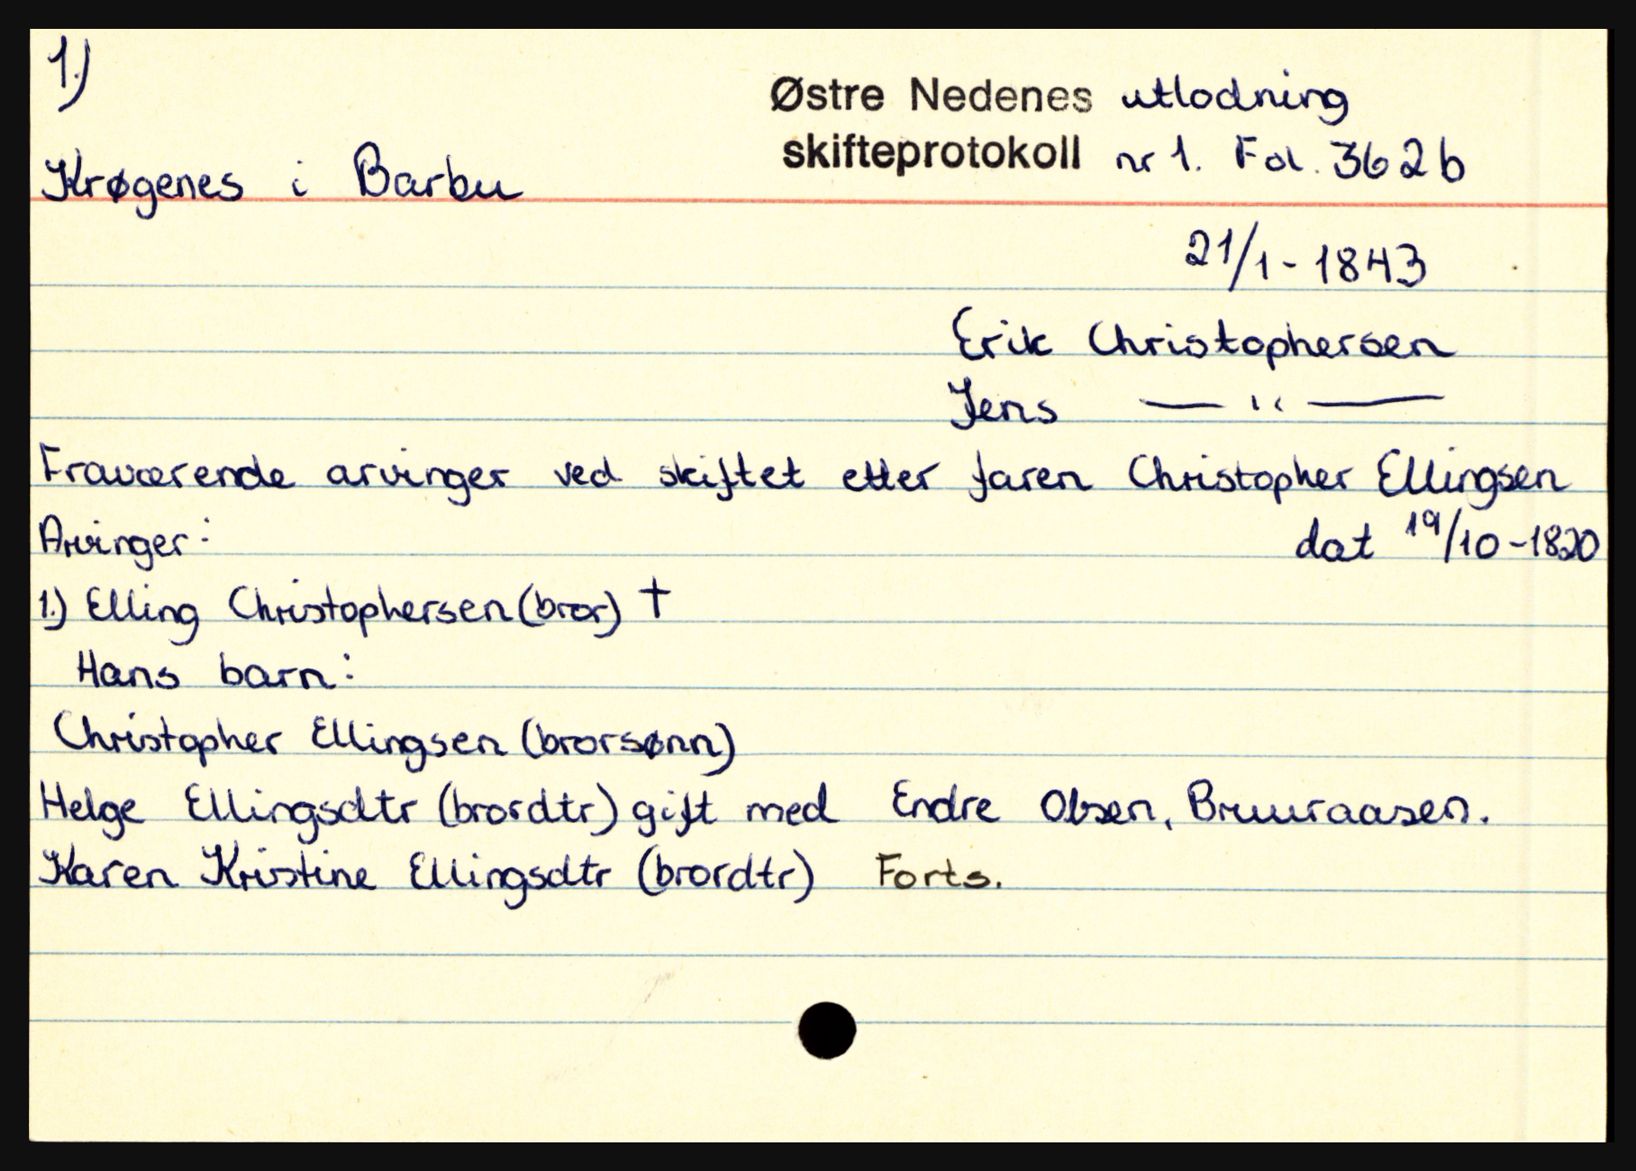 1.)
Østre Nedenes utlodning
skifteprotokoll nr 1. Fol. 362b
Krøgenes i Barbu
21/1-1843
Erik Christophersen
Jens — " —
Fraværende arvinger ved skiftet etter faren Christopher Ellingsen
Arvinger: dat 19/10-1820
1.) Elling Christophersen (bror) †
Hans barn:
Christopher Ellingsen (brorsønn)
Helge Ellingsdtr (brordtr) gift med Endre Olsen, Bruuraasen.
Karen Kristine Ellingsdtr (brordtr) Forts.